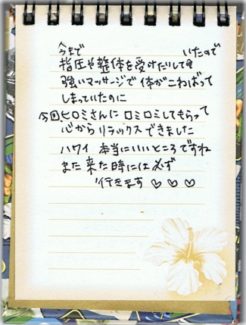 今まで いたので
指圧や整体を受けたりしても
強いマッサージで体がこわばって
しまっていたのに
今回ヒロミさんに ロミロミしてもらって
心からリラックスできました
ハワイ 本当にいいところですね
また来た時には必ず
行きます ♡ ♡ ♡